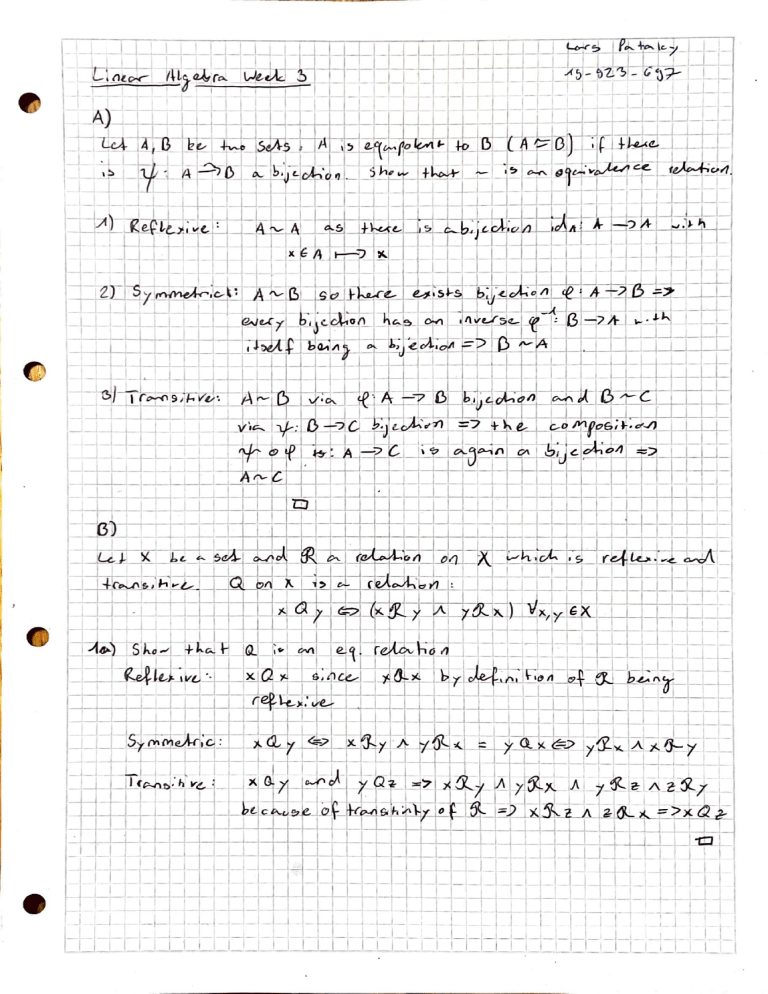 Lars Pataky
Linear Algebra Week 3
19-923-697
A)
Let A, B be two sets, A is equipotent to B (A ≃ B) if there
is ψ: A → B a bijection. Show that ~ is an equivalence relation.
1) Reflexive: A ~ A as there is a bijection id_A: A → A with
x ∈ A ↦ x
2) Symmetrict: A ~ B so there exists bijection φ: A → B =>
every bijection has an inverse φ⁻¹: B → A with
itself being a bijection => B ~ A
3) Transitive: A ~ B via φ: A → B bijection and B ~ C
via ψ: B → C bijection => the composition
ψ ∘ φ : A → C is again a bijection =>
A ~ C
□
B)
Let X be a set and R a relation on X which is reflexive and
transitive. Q on X is a relation:
x Q y ⇔ (x R y ∧ y R x) ∀x,y ∈ X
1a) Show that Q is an eq. relation
Reflexive: x Q x since x R x by definition of R being
reflexive
Symmetric: x Q y ⇔ x R y ∧ y R x = y Q x ⇔ y R x ∧ x R y
Transitive: x Q y and y Q z => x R y ∧ y R x ∧ y R z ∧ z R y
because of transitivity of R => x R z ∧ z R x => x Q z
□